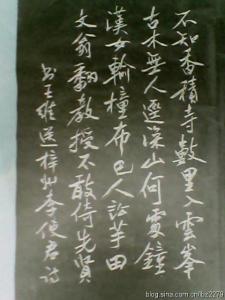 不知香積寺數里入雲峯
古木無人逕深山何處鐘
漢女輸橦布巴人訟芋田
文翁翻教授不敢倚先賢
书王維送梓州李使君詩
blog.sina.com.cn/lbz2279